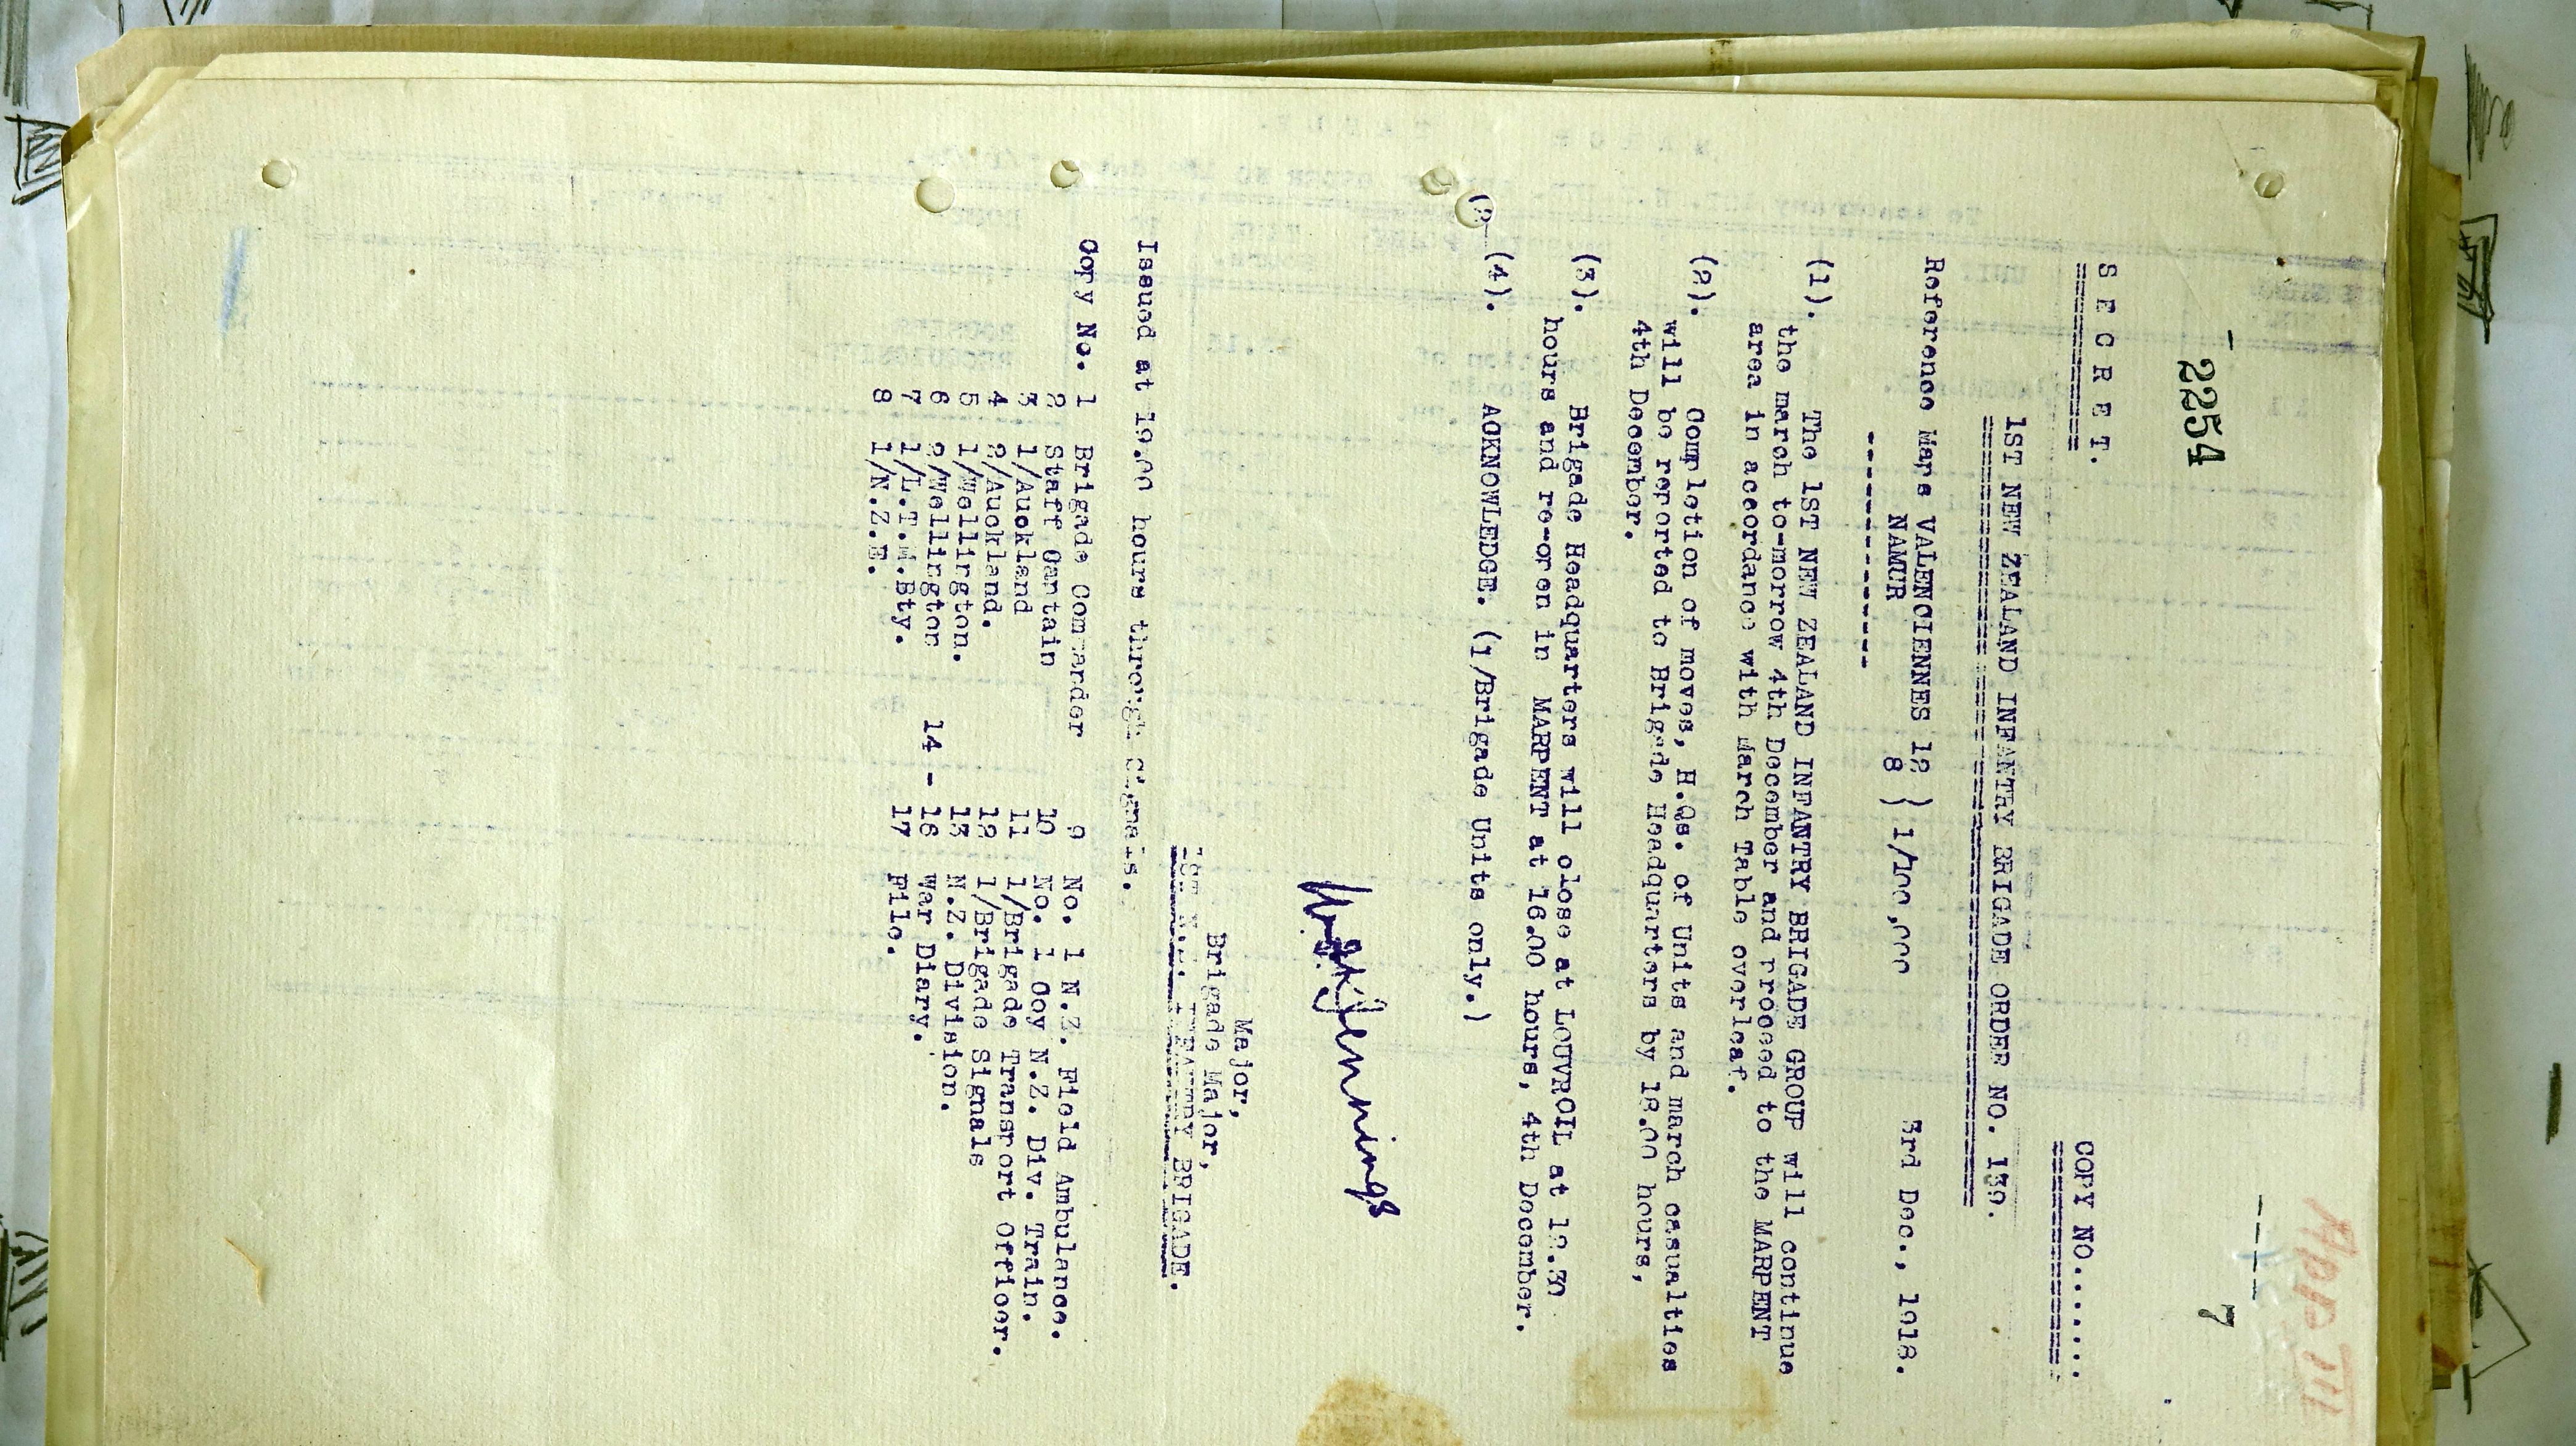 App III
7
2254
S E C R E T.
COPY NO........
1ST NEW ZEALAND INFANTRY BRIGADE ORDER NO. 139.
3rd Dec., 1918.
Reference Maps VALENCIENNES 12 ) 1/100,000
NAMUR 8 )
(1). The 1ST NEW ZEALAND INFANTRY BRIGADE GROUP will continue
the march to-morrow 4th December and proceed to the MARPENT
area in accordance with March Table overleaf.
(2). Completion of moves, H.Qs. of Units and march casualties
will be reported to Brigade Headquarters by 18.00 hours,
4th December.
(3). Brigade Headquarters will close at LOUVROIL at 12.30
hours and re-open in MARPENT at 16.00 hours, 4th December.
(4). ACKNOWLEDGE. (1/Brigade Units only.)
Jennings
Major,
Brigade Major,
1ST N.Z. INFANTRY BRIGADE.
Issued at 19.00 hours through Signals.
Copy No. 1 Brigade Commander
2 Staff Captain
3 1/Auckland
4 2/Auckland.
5 1/Wellington.
6 2/Wellington
7 1/L.T.M.Bty.
8 1/N.Z.E.
9 No. 1 N.Z. Field Ambulance.
10 No. 1 Coy N.Z. Div. Train.
11 1/Brigade Transport Officer.
12 1/Brigade Signals
13 N.Z. Division.
14 - 16 War Diary.
17 File.